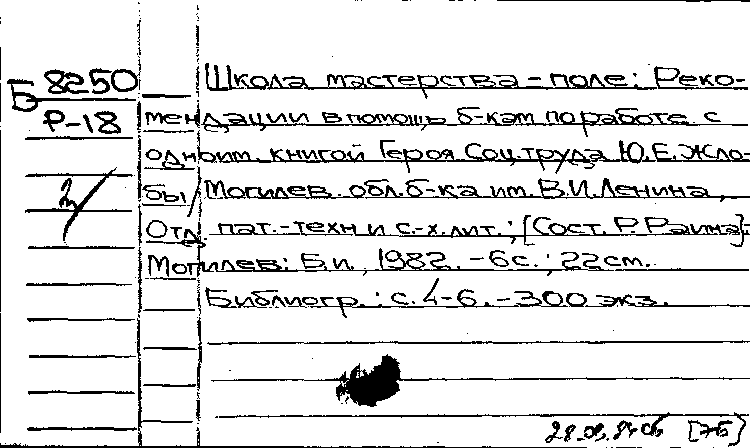 Б 8250
Р-18
2/
Школа мастерства - поле: Реко-
мендации в помощь б-кам по работе с
одноим. книгой Героя Соц. труда Ю.Е. Жло-
бы / Могилев. обл. б-ка им. В.И. Ленина,
Отд. пат.-техн и с.-х. лит.; [Сост. Р. Раима].-
Могилев: Б.и., 1982. - 6 с.; 22 см.
Библиогр.: с. 4-6. - 300 экз.